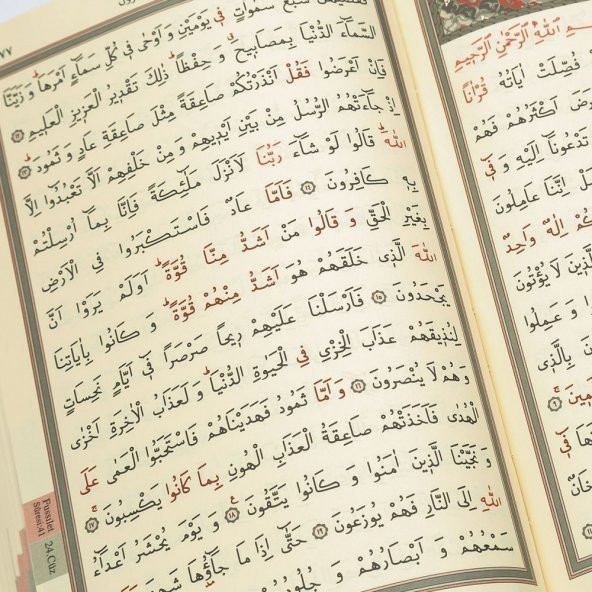 بِسْمِ اللّٰهِ الرَّحْمٰنِ الرَّح۪يمِ
فُصِّلَتْ اٰيَاتُهُ قُرْاٰنًا
اَكْثَرُهُمْ فَهُمْ
تَدْعُونَٓا اِلَيْهِ وَف۪ٓي
اِنَّنَا عَامِلُونَ
اِلٰهٌ وَاحِدٌ
الَّذ۪ينَ لَا يُؤْتُونَ
وَعَمِلُوا
بِالَّذ۪ي
٧٧
سَبْعَ سَمٰوَاتٍ ف۪ي يَوْمَيْنِ وَاَوْحٰى ف۪ي كُلِّ سَمَٓاءٍ اَمْرَهَا وَزَيَّنَّا
السَّمَٓاءَ الدُّنْيَا بِمَصَاب۪يحَ وَحِفْظًا ذٰلِكَ تَقْد۪يرُ الْعَز۪يزِ الْعَل۪يمِ ١٢
فَاِنْ اَعْرَضُوا فَقُلْ اَنْذَرْتُكُمْ صَاعِقَةً مِثْلَ صَاعِقَةِ عَادٍ وَثَمُودَ ١٣
اِذْ جَٓاءَتْهُمُ الرُّسُلُ مِنْ بَيْنِ اَيْد۪يهِمْ وَمِنْ خَلْفِهِمْ اَلَّا تَعْبُدُٓوا اِلَّا
اللّٰهَ قَالُوا لَوْ شَٓاءَ رَبُّنَا لَاَنْزَلَ مَلٰٓئِكَةً فَاِنَّا بِمَٓا اُرْسِلْتُمْ
بِه۪ كَافِرُونَ ١٤ فَاَمَّا عَادٌ فَاسْتَكْبَرُوا فِي الْاَرْضِ
بِغَيْرِ الْحَقِّ وَقَالُوا مَنْ اَشَدُّ مِنَّا قُوَّةً اَوَلَمْ يَرَوْا اَنَّ
اللّٰهَ الَّذ۪ي خَلَقَهُمْ هُوَ اَشَدُّ مِنْهُمْ قُوَّةً وَكَانُوا بِاٰيَاتِنَا
يَجْحَدُونَ ١٥ فَاَرْسَلْنَا عَلَيْهِمْ ر۪يحًا صَرْصَرًا ف۪ٓي اَيَّامٍ نَحِسَاتٍ
لِنُذ۪يقَهُمْ عَذَابَ الْخِزْيِ فِي الْحَيٰوةِ الدُّنْيَا وَلَعَذَابُ الْاٰخِرَةِ اَخْزٰى
وَهُمْ لَا يُنْصَرُونَ ١٦ وَاَمَّا ثَمُودُ فَهَدَيْنَاهُمْ فَاسْتَحَبُّوا الْعَمٰى عَلَى
الْهُدٰى فَاَخَذَتْهُمْ صَاعِقَةُ الْعَذَابِ الْهُونِ بِمَا كَانُوا يَكْسِبُونَ ١٧
وَنَجَّيْنَا الَّذ۪ينَ اٰمَنُوا وَكَانُوا يَتَّقُونَ ١٨ وَيَوْمَ يُحْشَرُ اَعْدَٓاءُ
اللّٰهِ اِلَى النَّارِ فَهُمْ يُوزَعُونَ ١٩ حَتّٰٓى اِذَا مَا جَٓاؤُ۫هَا شَهِدَ
سَمْعُهُمْ وَاَبْصَارُهُمْ وَجُلُودُهُمْ
Fussilet
Sûresi:41
24.Cüz